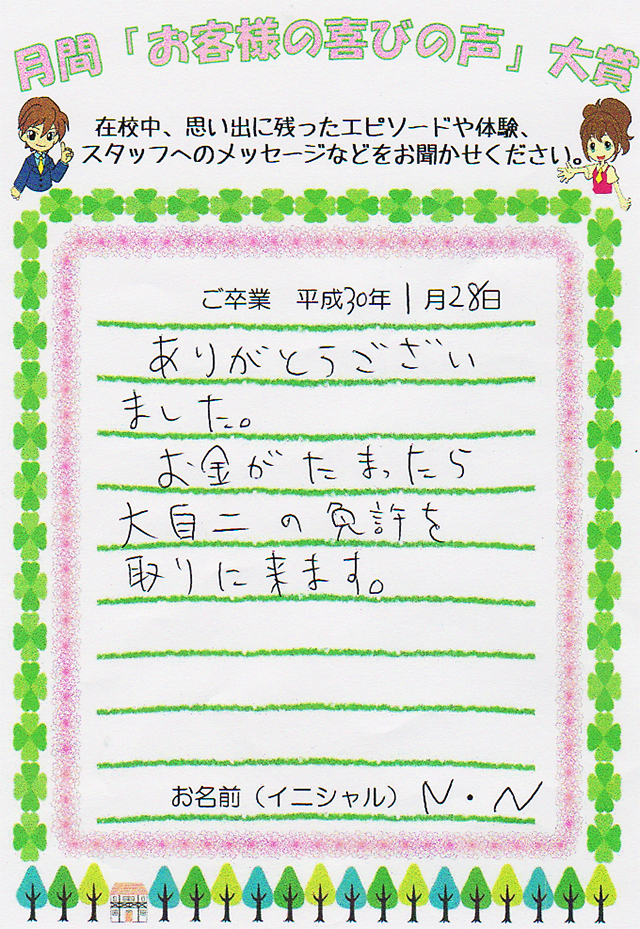 月間「お客様の喜びの声」大賞
在校中、思い出に残ったエピソードや体験、
スタッフへのメッセージなどをお聞かせください。
ご卒業 平成30年1月28日
ありがとうござい
ました。
お金がたまったら
大自二の免許を
取りに来ます。
お名前（イニシャル）N・N